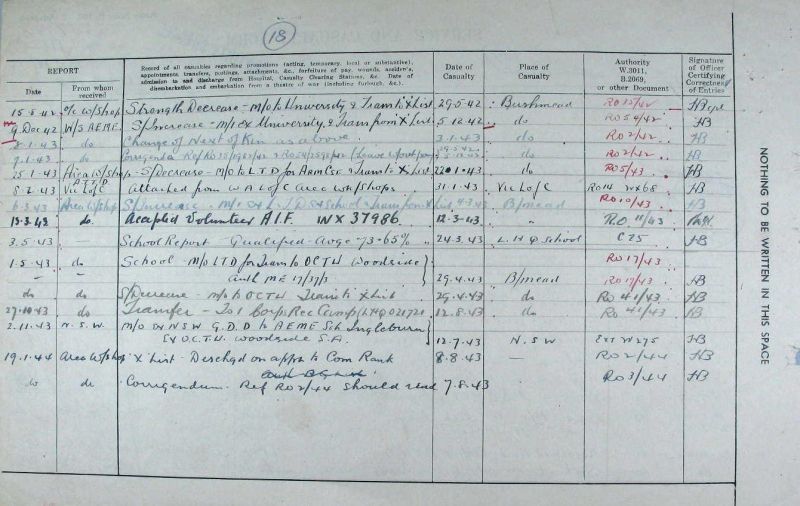 18
REPORT
Date
From whom received
Record of all casualties regarding promotions (acting, temporary, local or substantive), appointments, transfers, postings, attachments, &c., forfeiture of pay, wounds, accidents, admission to and discharge from Hospital, Casualty Clearing Stations, &c. Date of disembarkation and embarkation from a theatre of war (including furlough, &c.).
Date of Casualty
Place of Casualty
Authority W.3011, B.2069, or other Document
Signature of Officer Certifying Correctness of Entries
15.5.42 o/c W/Shop Strength Decrease - m/o to University & Trans to X List 29-5-42 Bushmead RO 12/42
9 Dec 42 W/S AEME S/Increase - m/i ex University & Trans from X List 5.12.42 do RO 54/42 HB
8-1-43 do Change of Next of Kin as above 3.1.43 do RO 2/42 HB
9-1-43 do Corrigenda Ref RO do RO 2/42 HB
25.1.43 Area W/Shop S/Decrease - m/o to LTD for Arm Csr & Trans to X List 22.1.43 do RO 5/43 HB
8-2-43 Vic L of C Attached from W A L of C Area W/shops 31.1.43 Vic L of C RO 14 HB
6.3.43 Area W/Shop S/Increase - m/i ex L.T.D. & School & Trans from X List 4-3-43 B/mead RO 10/43 HB
13-3-43 do. Accepted Volunteer A.I.F. WX 37986. 12-3-43 " R.O 11/43
3.5.43 — School Report - Qualified - Avge - 73-65% 24.3.43 L.H.Q School C 25 HB
1.5.43 do School - m/o LTD for Trans to OCTU Woodside RO 17/43
auth ME 17/37/3 29.4.43 B/mead RO 17/43 HB
do do S/Decrease - m/o to OCTU Trans to X List 29.4.43 do RO 41/43 HB
27-10-43 do Transfer - To 1 Corps Rec Camp (LHQ 021721 12.8.43 do RO 41/43 HB
2.11.43 N.S.W. m/o ex NSW G.D.D to AEME Sch Ingleburn
Ex O.C.T.U. Woodside S.A. 12.7.43 N.S.W HB
19.1.44 Area W/Shop X List - Deschgd on appt to Com Rank 8.8.43 — RO 2/44 HB
do do Corrigendum. Ref RO 2/44 should read 7.8.43 RO 3/44 HB
NOTHING TO BE WRITTEN IN THIS SPACE